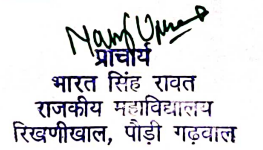 प्राचार्य
भारत सिंह रावत
राजकीय महाविद्यालय
रिखणीखाल, पौड़ी गढ़वाल